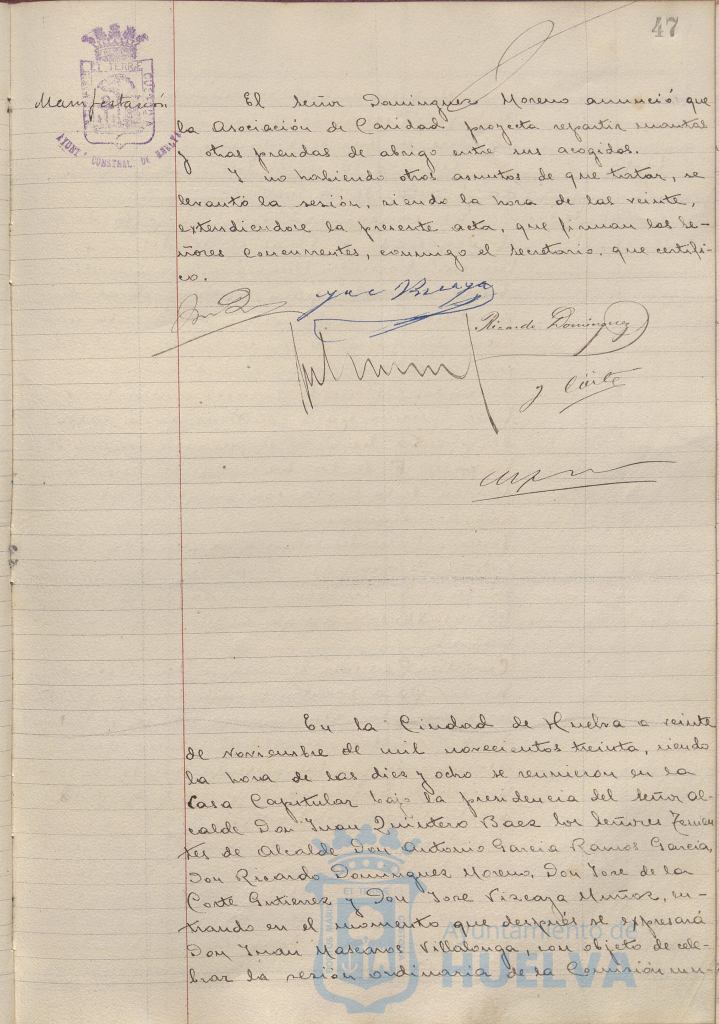 47
EL TERRE
AYUNTº CONSTNAL DE HUELVA
Manifestación
El Señor Dominguez Moreno anunció que
la Asociación de Caridad proyecta repartir mantas
y otras prendas de abrigo entre sus acogidos.
Y no habiendo otros asuntos de que tratar, se
levantó la sesión, siendo la hora de las veinte,
extendiendose la presente acta, que firman los Se-
ñores concurrentes, conmigo el Secretario, que certifi-
co.
Ricardo Dominguez
En la Ciudad de Huelva a veinte
de noviembre de mil novecientos treinta, siendo
la hora de las diez y ocho se reunieron en la
Casa Capitular bajo la presidencia del Señor Al-
calde Don Juan Quintero Baez los Señores Tenien-
tes de Alcalde Don Antonio Garcia Ramos Garcia,
Don Ricardo Dominguez Moreno, Don Jose de la
Corte Gutierrez y Don Jose Vizcaya Muñoz, en-
trando en el momento que después se expresará
Don Juan Mascaros Villalonga, con objeto de cele-
brar la sesión ordinaria de la Comisión mu-
Ayuntamiento de
HUELVA